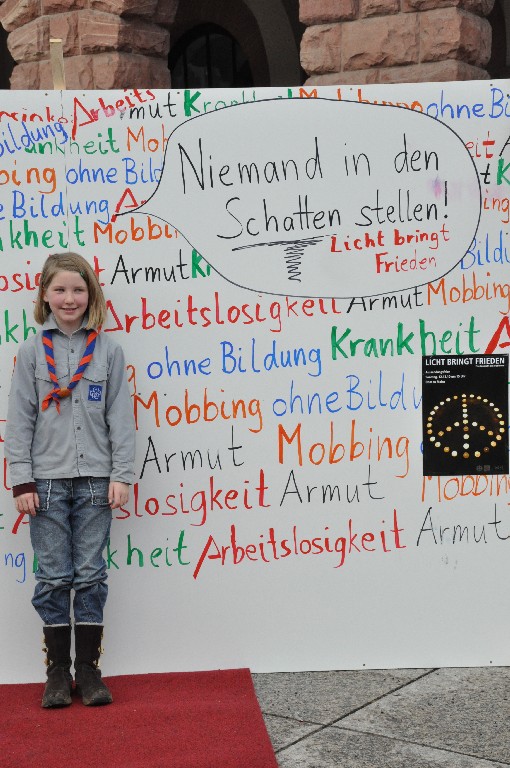 Arbeits Armut Krankheit ohne Bi
Bildung
Krankheit Mob
Mobbing ohne Bild
ohne Bildung
Krankheit Mobbing
Armut
Niemand in den
Schatten stellen!
Licht bringt
Frieden
Bildung
Arbeitslosigkeit Armut Mobbing
ohne Bildung Krankheit
Mobbing ohne Bildu
LICHT BRINGT FRIEDEN
Armut Mobbing
Arbeitslosigkeit Armut Mobbing
Krankheit Arbeitslosigkeit Armut